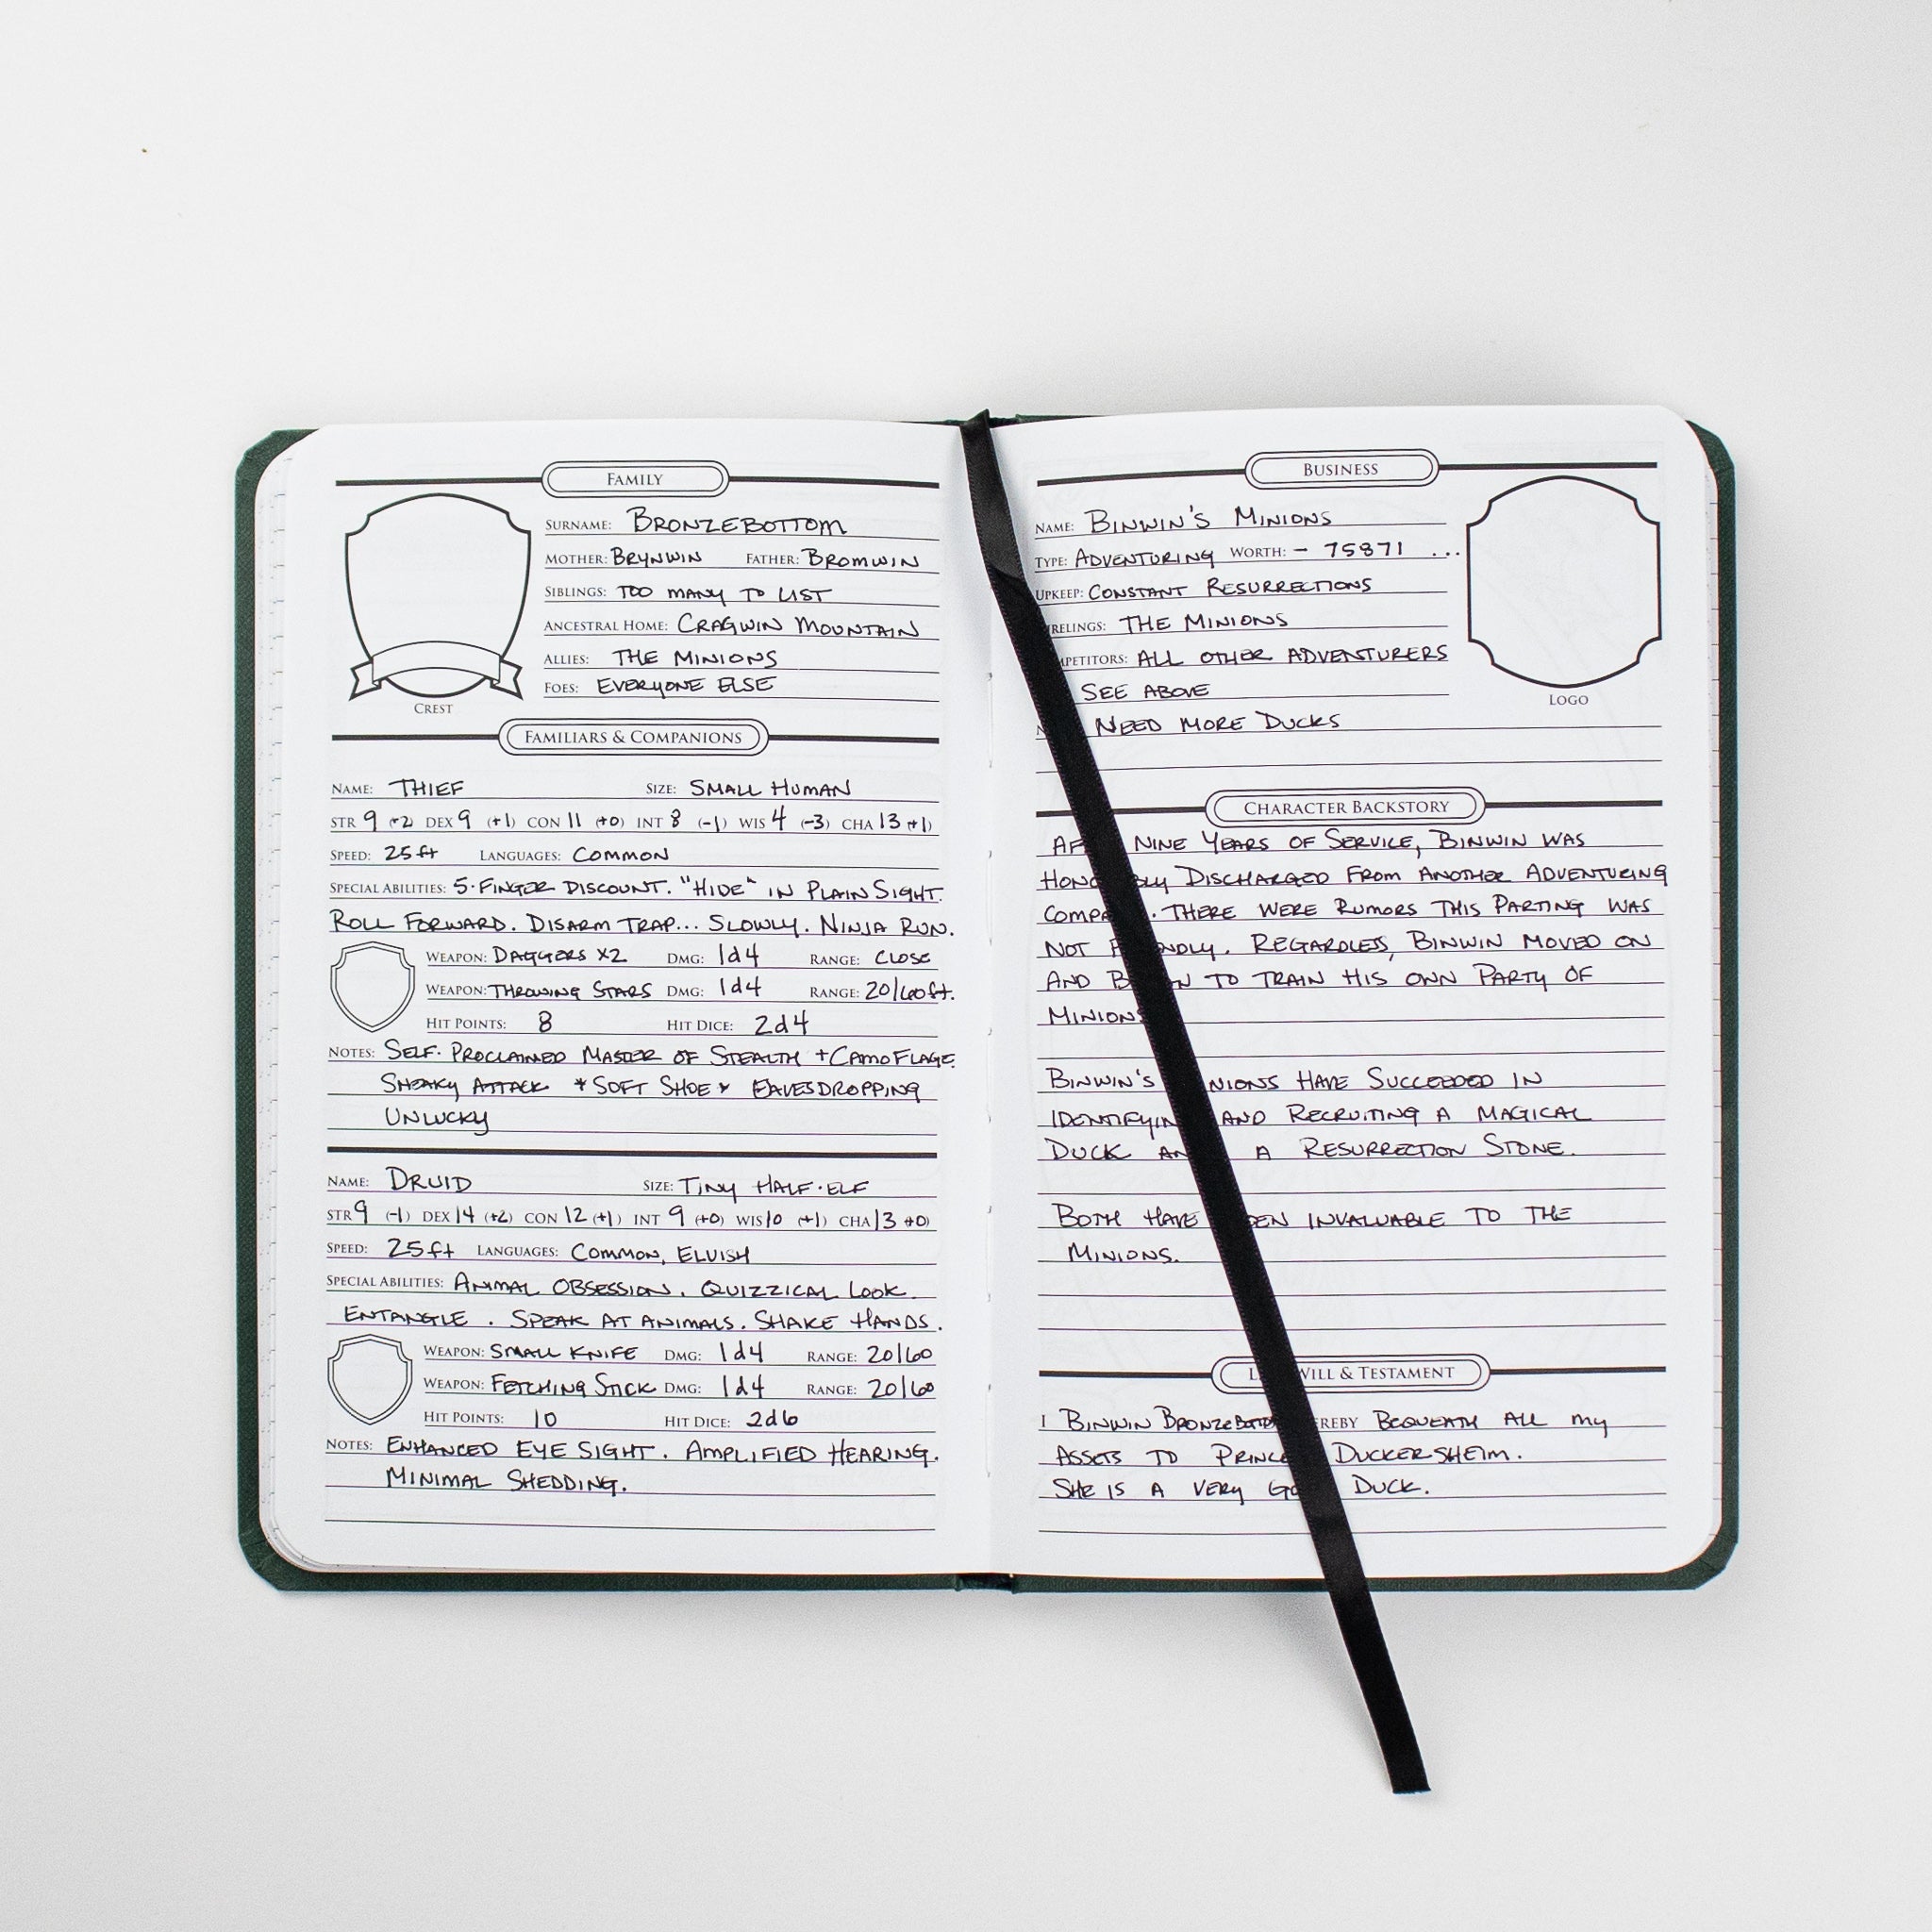 FAMILY
SURNAME: BRONZEBOTTOM
MOTHER: BRYNWIN FATHER: BROMWIN
SIBLINGS: TOO MANY TO LIST
ANCESTRAL HOME: CRAGWIN MOUNTAIN
ALLIES: THE MINIONS
FOES: EVERYONE ELSE
CREST
FAMILIARS & COMPANIONS
NAME: THIEF SIZE: SMALL HUMAN
STR 9 (+2) DEX 9 (+1) CON 11 (+0) INT 8 (-1) WIS 4 (-3) CHA 13 (+1)
SPEED: 25 ft LANGUAGES: COMMON
SPECIAL ABILITIES: 5-FINGER DISCOUNT. "HIDE" IN PLAIN SIGHT.
ROLL FORWARD. DISARM TRAP... SLOWLY. NINJA RUN.
WEAPON: DAGGERS X2 DMG: 1d4 RANGE: CLOSE
WEAPON: THROWING STARS DMG: 1d4 RANGE: 20/60ft.
HIT POINTS: 8 HIT DICE: 2d4
NOTES: SELF-PROCLAIMED MASTER OF STEALTH + CAMOFLAGE.
SNEAKY ATTACK * SOFT SHOE * EAVESDROPPING
UNLUCKY
NAME: DRUID SIZE: TINY HALF-ELF
STR 9 (-1) DEX 14 (+2) CON 12 (+1) INT 9 (+0) WIS 10 (+1) CHA 13 (+0)
SPEED: 25 ft LANGUAGES: COMMON, ELVISH
SPECIAL ABILITIES: ANIMAL OBSESSION. QUIZZICAL LOOK.
ENTANGLE. SPEAK AT ANIMALS. SHAKE HANDS.
WEAPON: SMALL KNIFE DMG: 1d4 RANGE: 20/60
WEAPON: FETCHING STICK DMG: 1d4 RANGE: 20/60
HIT POINTS: 10 HIT DICE: 2d6
NOTES: ENHANCED EYE SIGHT. AMPLIFIED HEARING.
MINIMAL SHEDDING.
BUSINESS
NAME: BINWIN'S MINIONS
TYPE: ADVENTURING WORTH: - 75871 ...
UPKEEP: CONSTANT RESURRECTIONS
RELINGS: THE MINIONS
PETITORS: ALL OTHER ADVENTURERS
SEE ABOVE
NEED MORE DUCKS
LOGO
CHARACTER BACKSTORY
AF NINE YEARS OF SERVICE, BINWIN WAS
HONO BLY DISCHARGED FROM ANOTHER ADVENTURING
COMPA . THERE WERE RUMORS THIS PARTING WAS
NOT F NDLY. REGARDLESS, BINWIN MOVED ON
AND B N TO TRAIN HIS OWN PARTY OF
MINIONS
BINWIN'S NIONS HAVE SUCCEEDED IN
IDENTIFYIN AND RECRUITING A MAGICAL
DUCK AN A RESURRECTION STONE.
BOTH HAVE EEN INVALUABLE TO THE
MINIONS.
L WILL & TESTAMENT
I BINWIN BRONZEBOTTO EREBY BEQUEATH ALL MY
ASSETS TO PRINCE DUCKERSHEIM.
SHE IS A VERY GO DUCK.